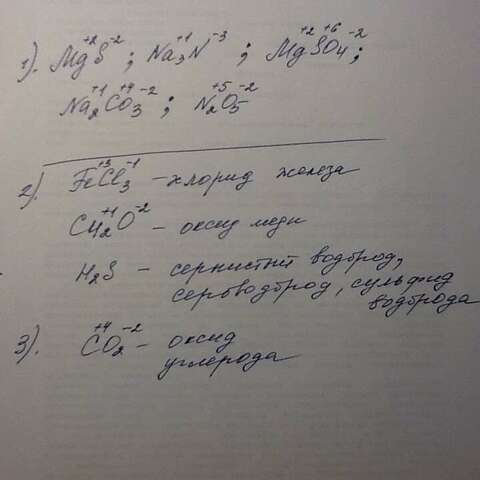 1). Mg⁺²S⁻² ; Na₃⁺¹N⁻³ ; Mg⁺²S⁺⁶O₄⁻² ;
Na₂⁺¹C⁺⁴O₃⁻² ; N₂⁺⁵O₅⁻²
2). Fe⁺³Cl₃⁻¹ – хлорид железа
Cu₂⁺¹O⁻² – оксид меди
H₂S – сернистый водород,
сероводород, сульфид
водорода
3). C⁺⁴O₂⁻² – оксид
углерода